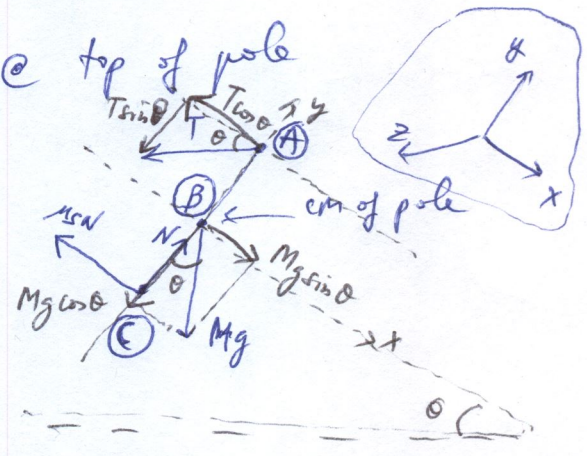 @ top of pole
y
Tsinθ
Tcosθ
y
T
θ
A
z
x
B
cm of pole
μsN
N
Mgsinθ
Mgcosθ
θ
C
Mg
x
θ